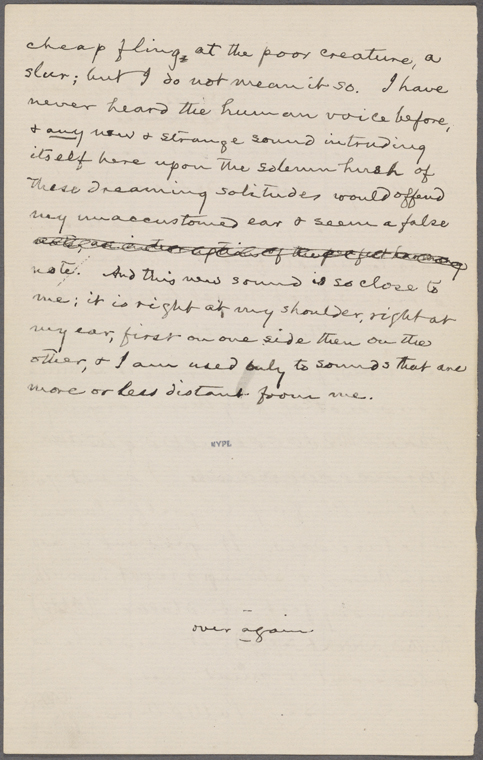 cheap fling, at the poor creature, a
slur; but I do not mean it so. I have
never heard the human voice before,
& any new & strange sound intruding
itself here upon the solemn hush of
these dreaming solitudes would offend
my unaccustomed ear & seem a false
note, an interruption of the perfect harmony
note. And this new sound is so close to
me; it is right at my shoulder, right at
my ear, first on one side then on the
other, & I am used only to sounds that are
more or less distant from me.
NYPL
over again